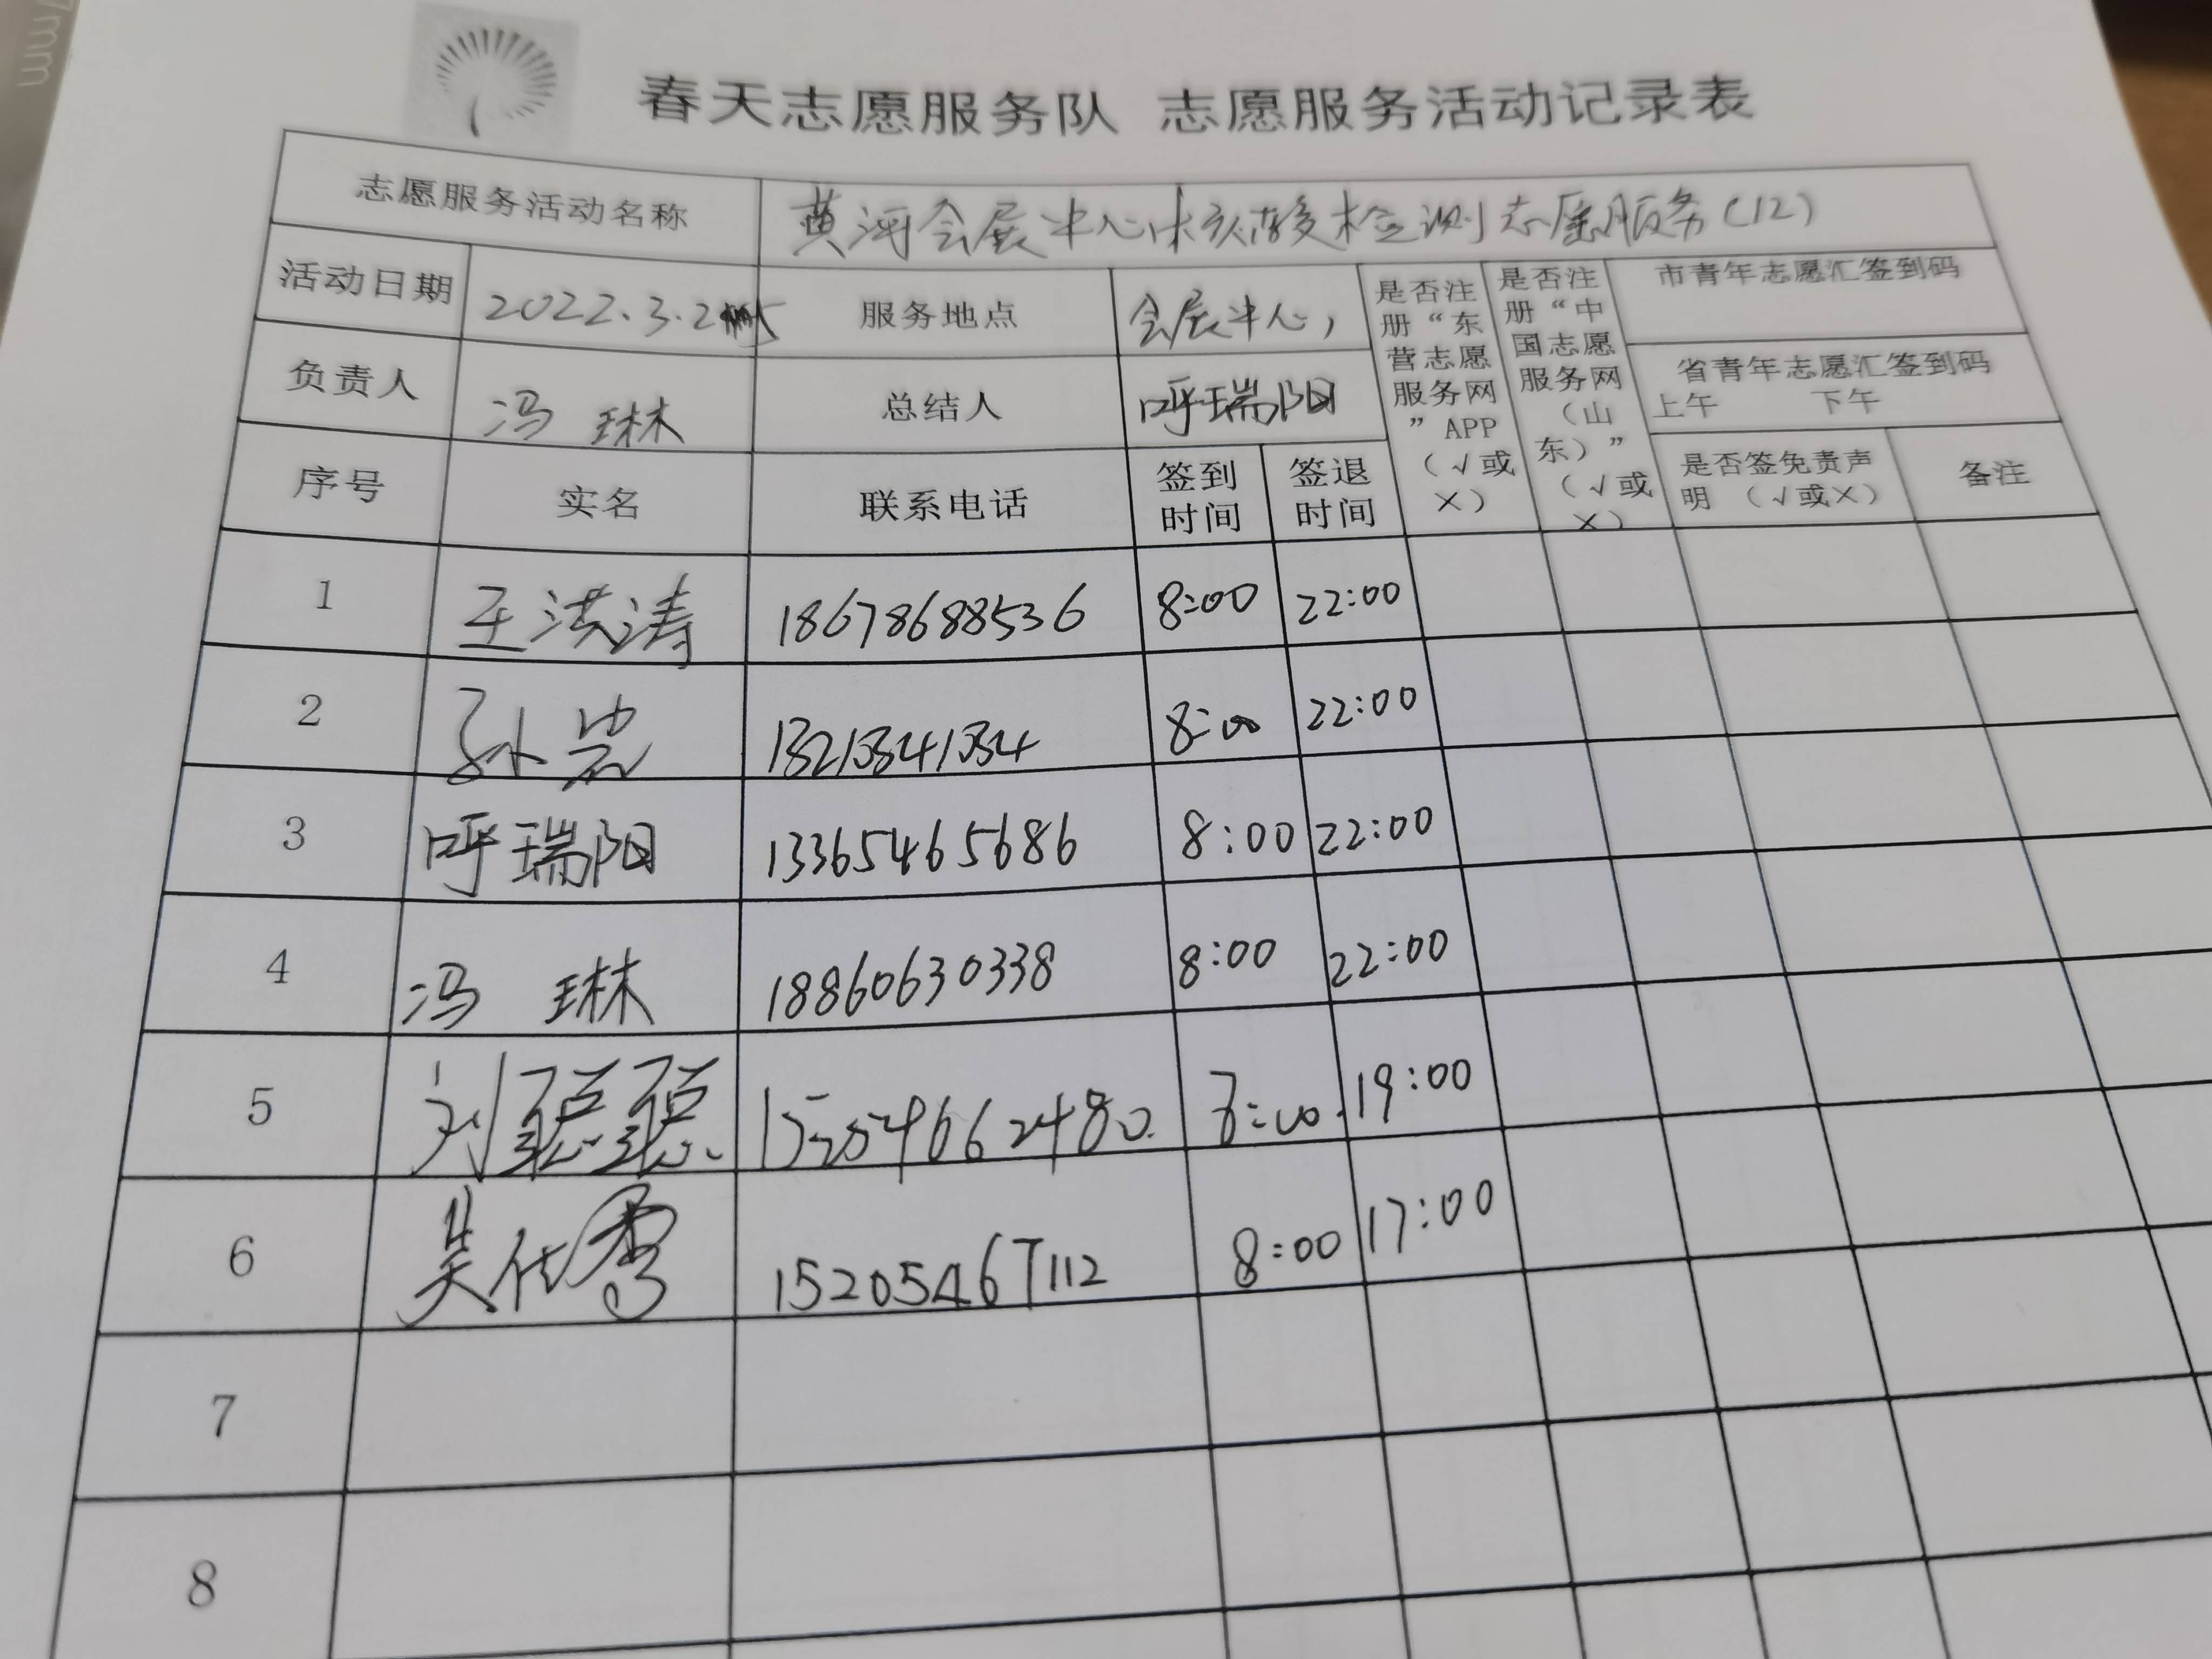 7mm
春天志愿服务队 志愿服务活动记录表
志愿服务活动名称 黄河会展中心核酸检测志愿服务(12)
活动日期 2022.3.2 服务地点 会展中心
负责人 冯琳 总结人 呼瑞阳
是否注册“东营志愿服务网”APP（√或×）
是否注册“中国志愿服务网（山东）”（√或×）
市青年志愿汇签到码
省青年志愿汇签到码
上午 下午
序号 实名 联系电话 签到时间 签退时间 是否签免责声明（√或×） 备注
1 王洪涛 18678688536 8:00 22:00
2 孙岩 8:00 22:00
3 呼瑞阳 13365465686 8:00 22:00
4 冯琳 18860630338 8:00 22:00
5 刘聪聪 8:00 19:00
6 吴代秀 15205467112 8:00 17:00
7
8